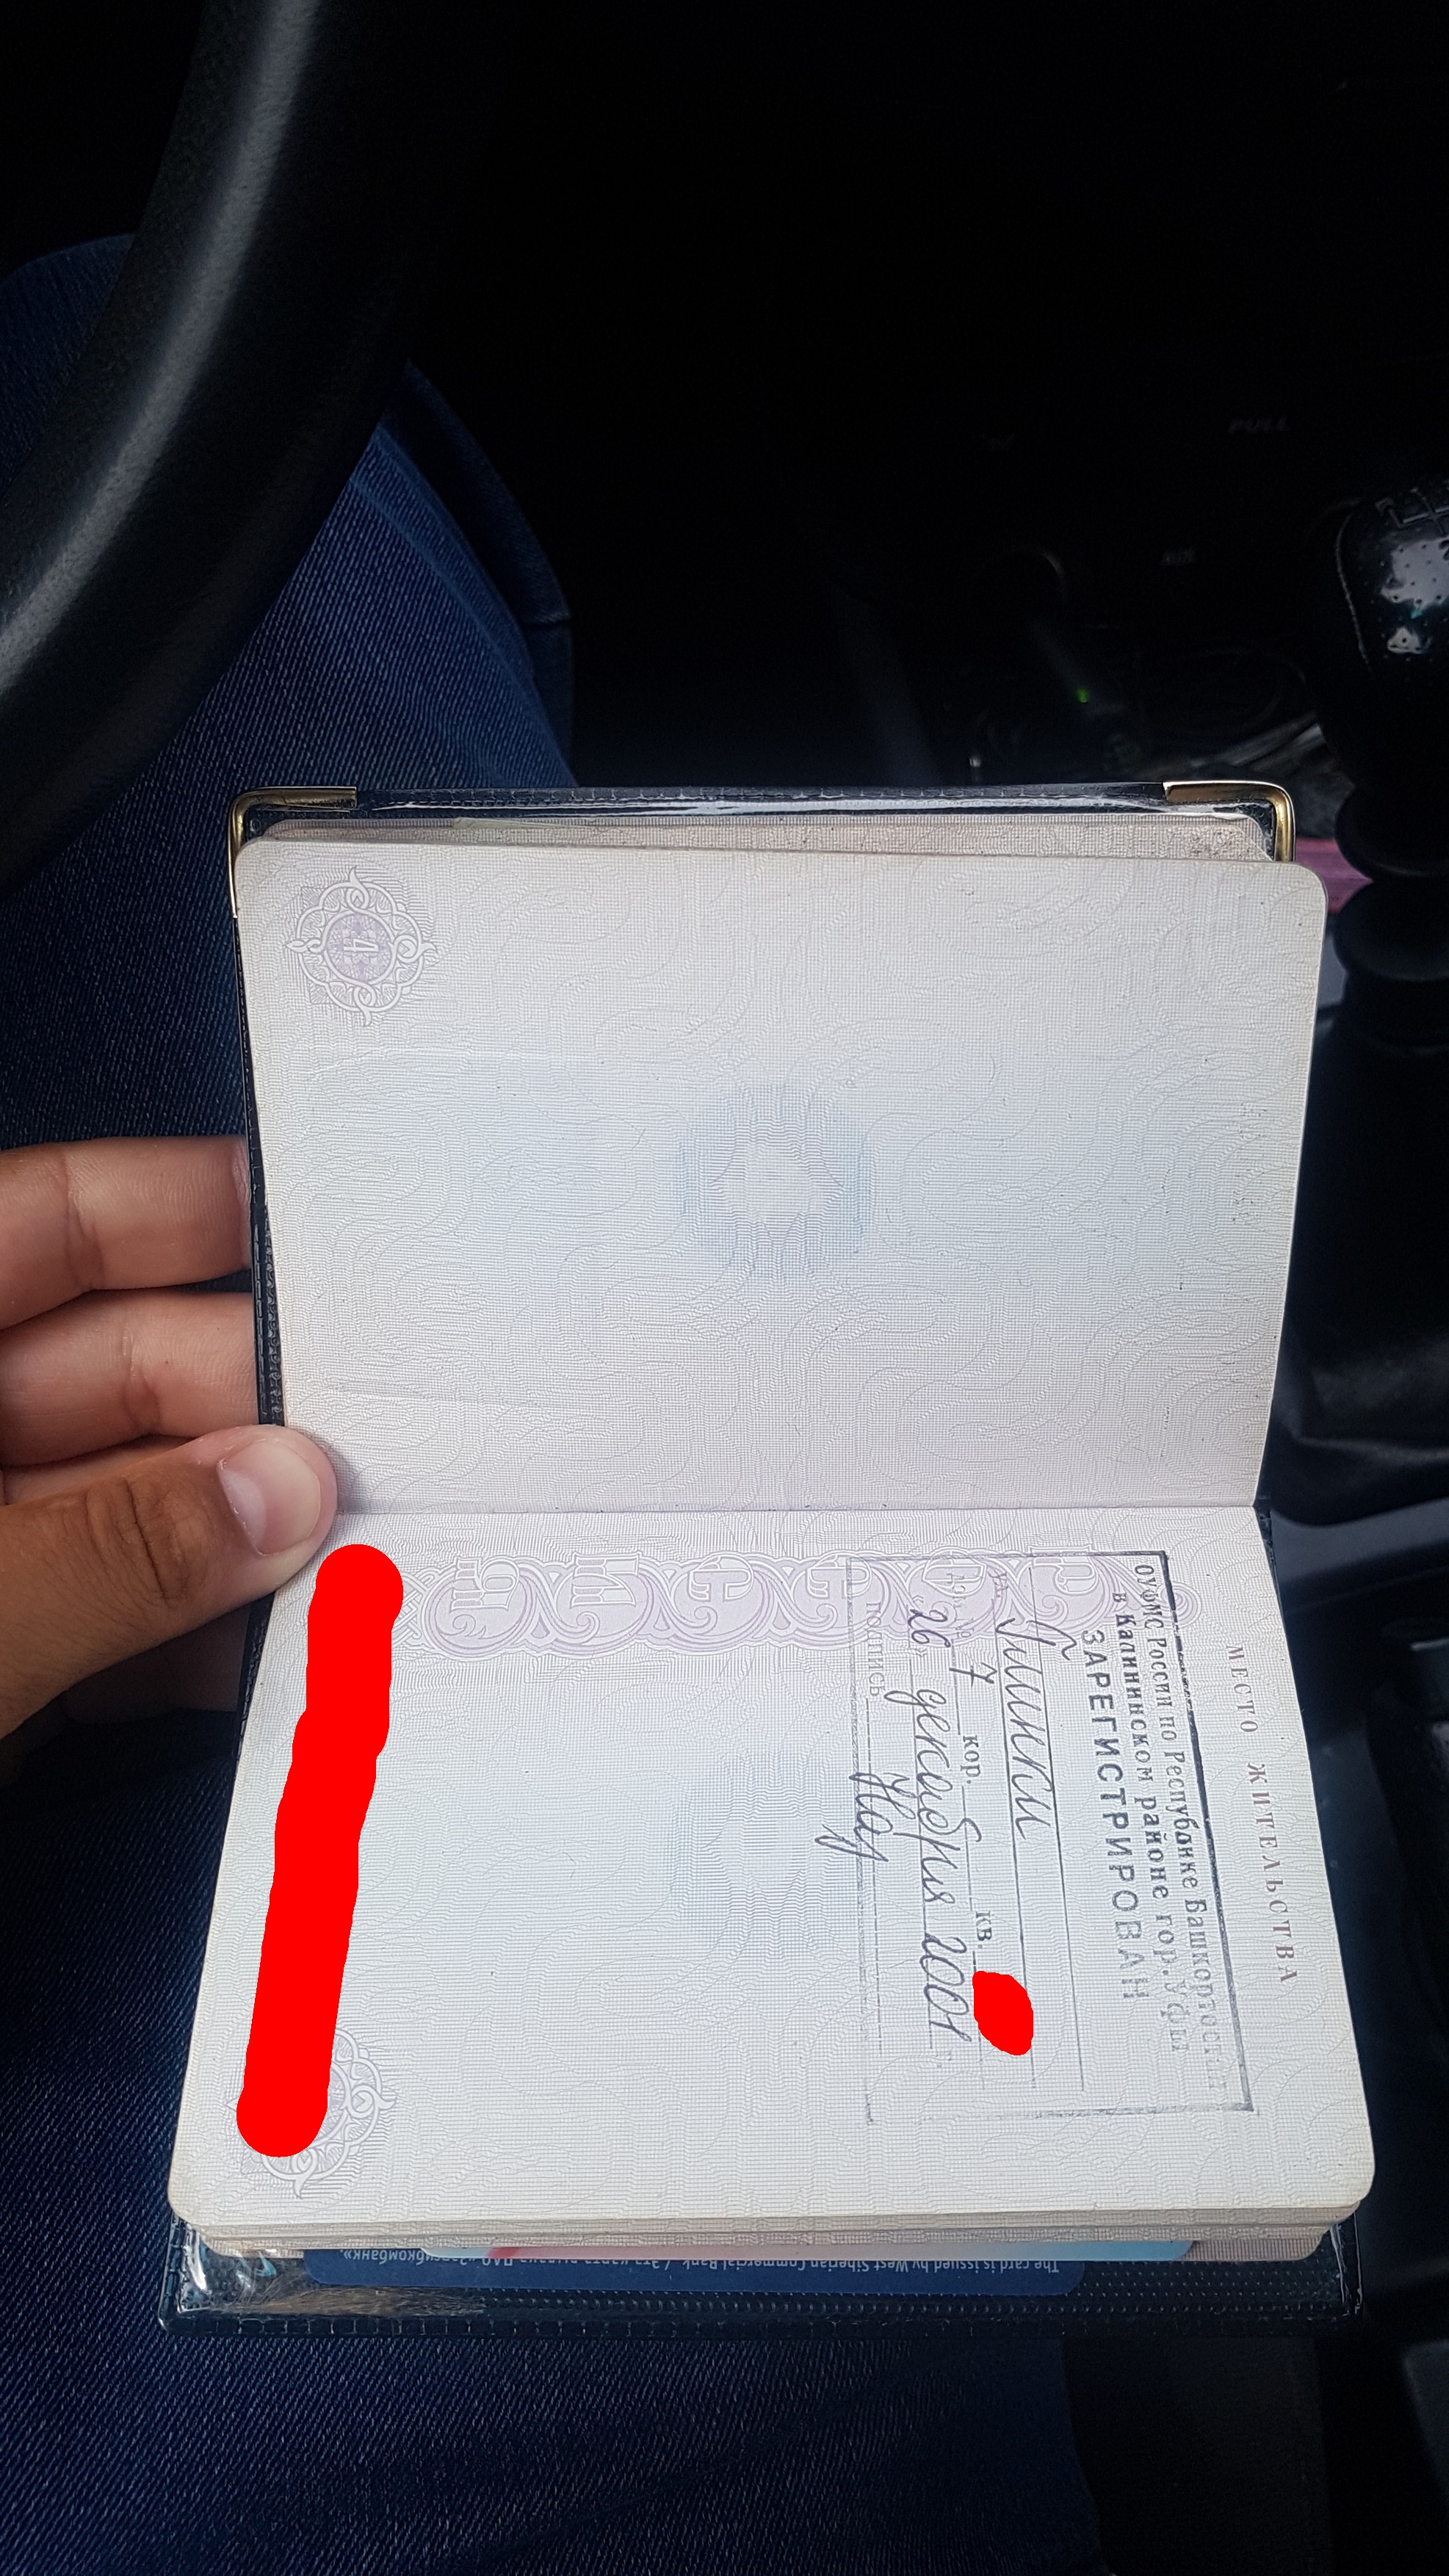 МЕСТО ЖИТЕЛЬСТВА
ОУФМС России по Республике Башкортостан
в Калининском районе гор. Уфы
ЗАРЕГИСТРИРОВАН
Г
ул. Глинки
дом № 7 кор. 5 кв.
"26" декабря 2001 г.
подпись
РОССИЯ
4
The card is issued by West Siberian Commercial Bank / Эта карта выдана ПАО «Запсибкомбанк»
PULL
AUX